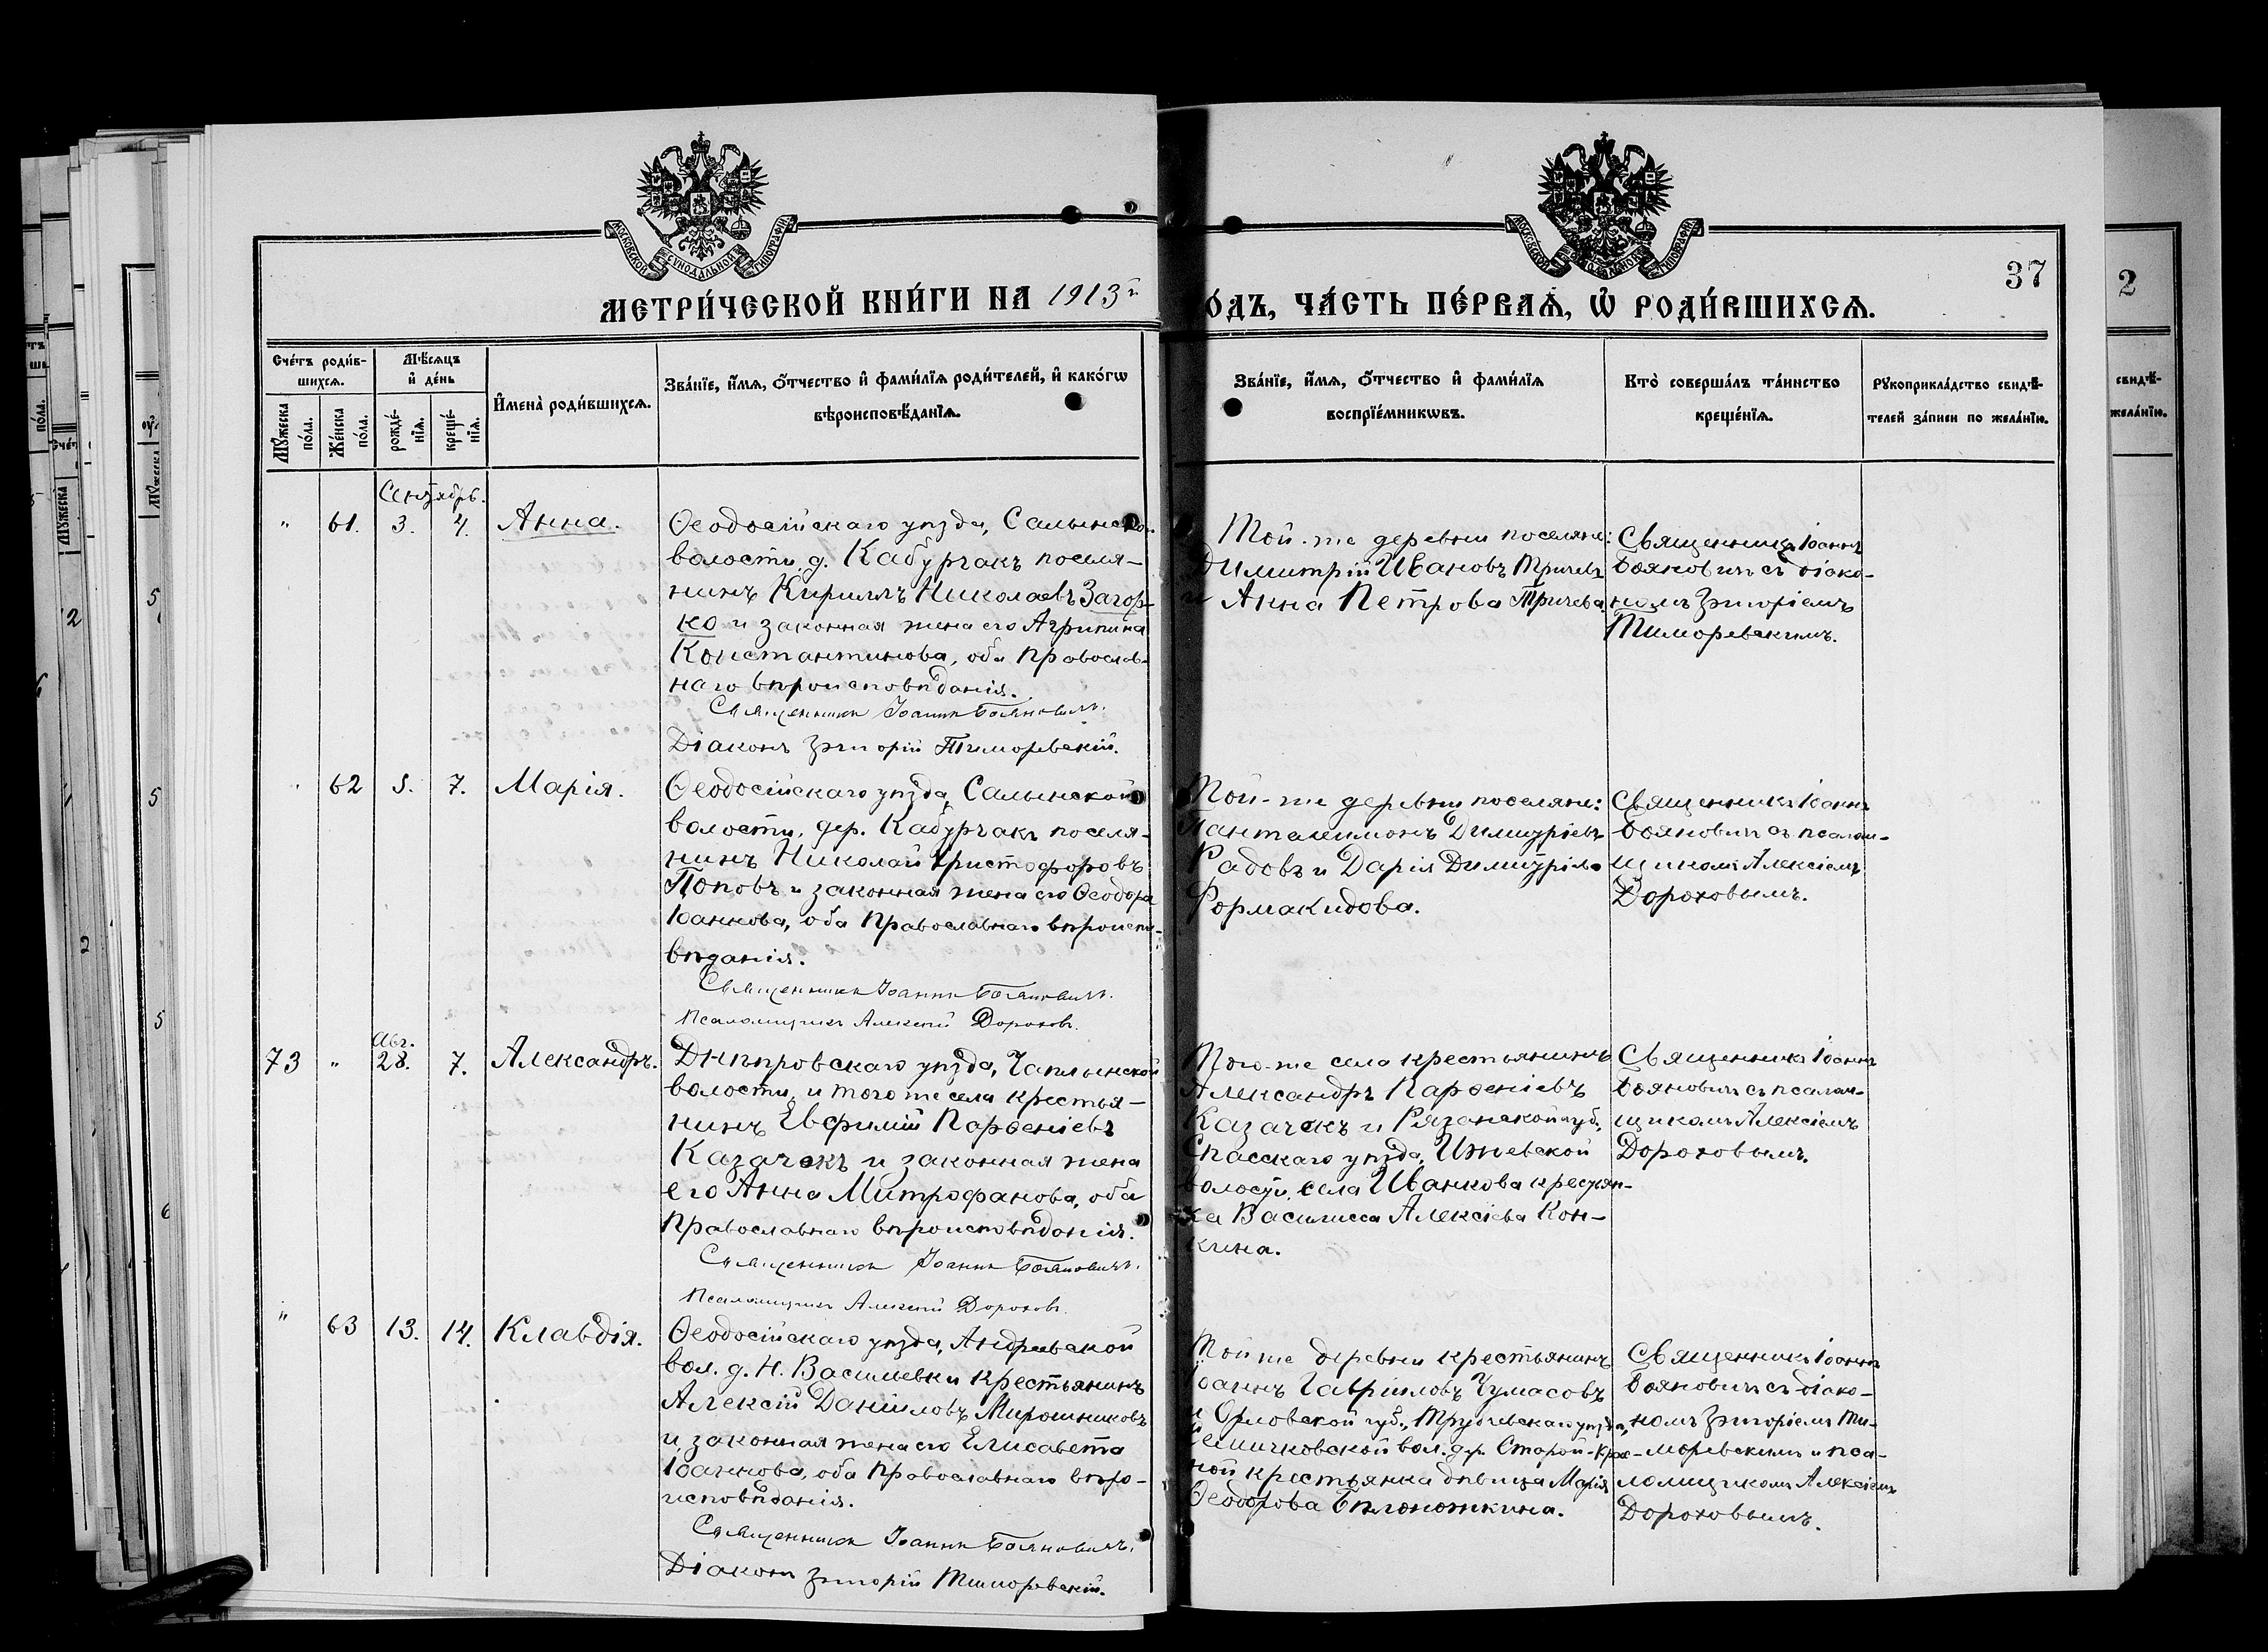 МОСКОВСКОЙ СУНОДАЛЬНОЙ ТИПОГРАФІИ
МОСКОВСКОЙ СУНОДАЛЬНОЙ ТИПОГРАФІИ
37
МЕТРИ́ЧЕСКОЙ КНИ́ГИ НА 1913 г
ОДЪ, ЧА́СТЬ ПЕ́РВАѦ, Ѿ РОДИ́ВШИХСѦ.
Сче́тъ роди́в-
шихсѧ.
Мѣ́сѧцъ
и҆ де́нь
Мꙋ́жеска по́ла.
Же́нска по́ла.
рожде́-нїѧ.
креще́-нїѧ.
И҆мена̀ роди́вшихсѧ.
Зва́нїе, и҆́мѧ, ѻ҆́тчество и҆ фами́лїѧ роди́телей, и҆ како́гѡ
вѣроисповѣ́данїѧ.
Зва́нїе, и҆́мѧ, ѻ҆́тчество и҆ фами́лїѧ
воспрїе́мникѡвъ.
Кто̀ соверша́лъ та́инство
креще́нїѧ.
Рꙋкоприкла́дство свидѣ́-
телей за́писи по жела́нїю.
Сентябрь.
" 61. 3. 4. Анна.
Ѳеодосійскаго уѣзда, Салынской
волости, д. Кабурчакъ поселя-
нинъ Кириллъ Николаевъ Загор-
ко и законная жена его Агрипина
Константинова, оба Православ-
наго вѣроисповѣданія.
Священникъ Іоаннъ Бояновичъ.
Діаконъ Григорій Тиморевскій.
Той-же деревни поселяне:
Димитрій Ивановъ Тричевъ
и Анна Петрова Тричева.
Священникъ Іоаннъ
Бояновичъ съ діако-
номъ Григоріемъ
Тиморевскимъ.
62 5. 7. Марія.
Ѳеодосійскаго уѣзда, Салынской
волости, дер. Кабурчакъ поселя-
нинъ Николай Христофоровъ
Поповъ и законная жена его Ѳеодора
Іоаннова, оба Православнаго вѣроиспо-
вѣданія.
Священникъ Іоаннъ Бояновичъ.
Псаломщикъ Алексій Дороховъ.
Той-же деревни поселяне:
Пантелеимонъ Димитріевъ
Радовъ и Дарія Димитріева
Формакидова.
Священникъ Іоаннъ
Бояновичъ съ псалом-
щикомъ Алексіемъ
Дороховымъ.
Авг.
73 " 28. 7. Александръ.
Днѣпровскаго уѣзда, Чаплынской
волости, и того же села крестья-
нинъ Евфимій Парѳеніевъ
Казачекъ и законная жена
его Анна Митрофанова, оба
Православнаго вѣроисповѣданія.
Священникъ Іоаннъ Бояновичъ.
Псаломщикъ Алексій Дороховъ.
Того-же села крестьянинъ
Александръ Парѳеніевъ
Казачекъ и Рязанской губ.,
Спасскаго уѣзда, Ижевской
волости, села Иванкова крестьян-
ка Василисса Алексіева Кон-
кина.
Священникъ Іоаннъ
Бояновичъ съ псалом-
щикомъ Алексіемъ
Дороховымъ.
" 63 13. 14. Клавдія.
Ѳеодосійскаго уѣзда, Андреевской
вол. д. Н. Васильевки крестьянинъ
Алексій Даніиловъ Мирошниковъ
и законная жена его Елисавета
Іоаннова, оба Православнаго вѣро-
исповѣданія.
Священникъ Іоаннъ Бояновичъ.
Діаконъ Григорій Тиморевскій.
Той же деревни крестьянинъ
Іоаннъ Гавріиловъ Чумасовъ
и Орловской губ., Трубчевскаго уѣзда,
Семячковской вол. дер. Старой-Крас-
ной крестьянка дѣвица Марія
Ѳеодорова Бѣлоножкина.
Священникъ Іоаннъ
Бояновичъ съ діако-
номъ Григоріемъ Ти-
моревскимъ и пса-
ломщикомъ Алексіемъ
Дороховымъ.